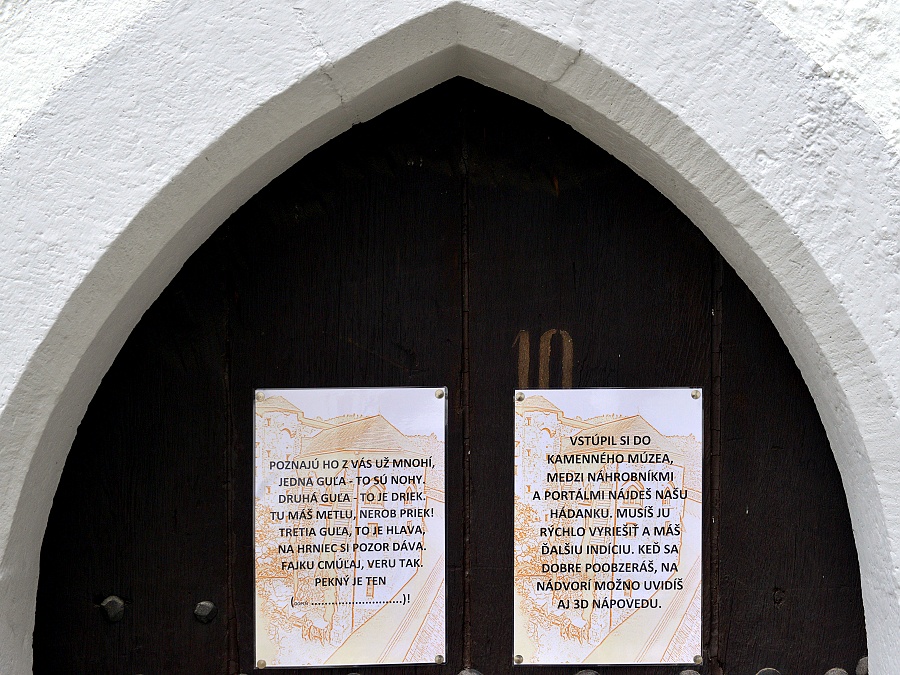 10
POZNAJÚ HO Z VÁS UŽ MNOHÍ,
JEDNA GUĽA - TO SÚ NOHY.
DRUHÁ GUĽA - TO JE DRIEK.
TU MÁŠ METLU, NEROB PRIEK!
TRETIA GUĽA, TO JE HLAVA,
NA HRNIEC SI POZOR DÁVA.
FAJKU CMÚĽAJ, VERU TAK.
PEKNÝ JE TEN
(DOPLŇ ............................)!
VSTÚPIL SI DO
KAMENNÉHO MÚZEA,
MEDZI NÁHROBNÍKMI
A PORTÁLMI NÁJDEŠ NAŠU
HÁDANKU. MUSÍŠ JU
RÝCHLO VYRIEŠIŤ A MÁŠ
ĎALŠIU INDÍCIU. KEĎ SA
DOBRE POOBZERÁŠ, NA
NÁDVORÍ MOŽNO UVIDÍŠ
AJ 3D NÁPOVEDU.